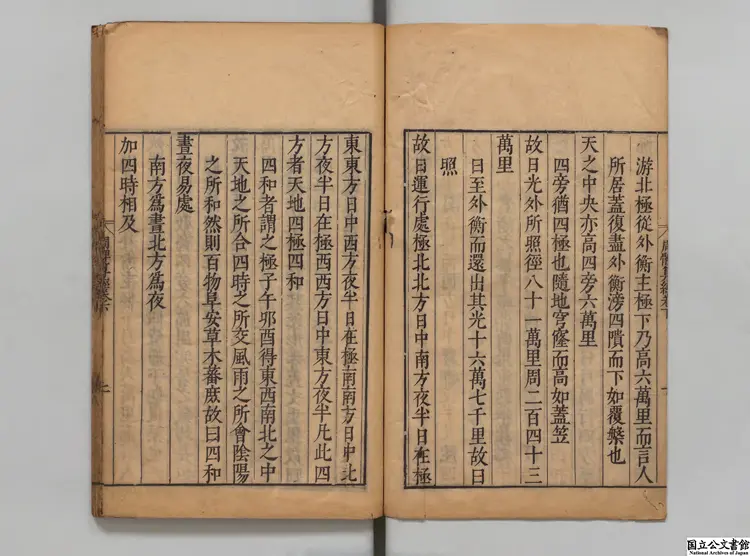 游北極從外衡主極下乃高六萬里而言人
所居蓋復盡外衡滂四隤而下如覆槃也
天之中央亦高四旁六萬里
四旁猶四極也隨地穹窿而高如蓋笠
故日光外所照徑八十一萬里周二百四十三
萬里
日至外衡而還出其光十六萬七千里故日
照
故日運行處極北北方日中南方夜半日在極
東東方日中西方夜半日在極南南方日中北
方夜半日在極西西方日中東方夜半凡此四
方者天地四極四和
四和者謂之極子午卯酉得東西南北之中
天地之所合四時之所交風雨之所會陰陽
之所和然則百物阜安草木蕃庶故曰四和
晝夜易處
南方爲晝北方爲夜
加四時相及
国立公文書館
National Archives of Japan